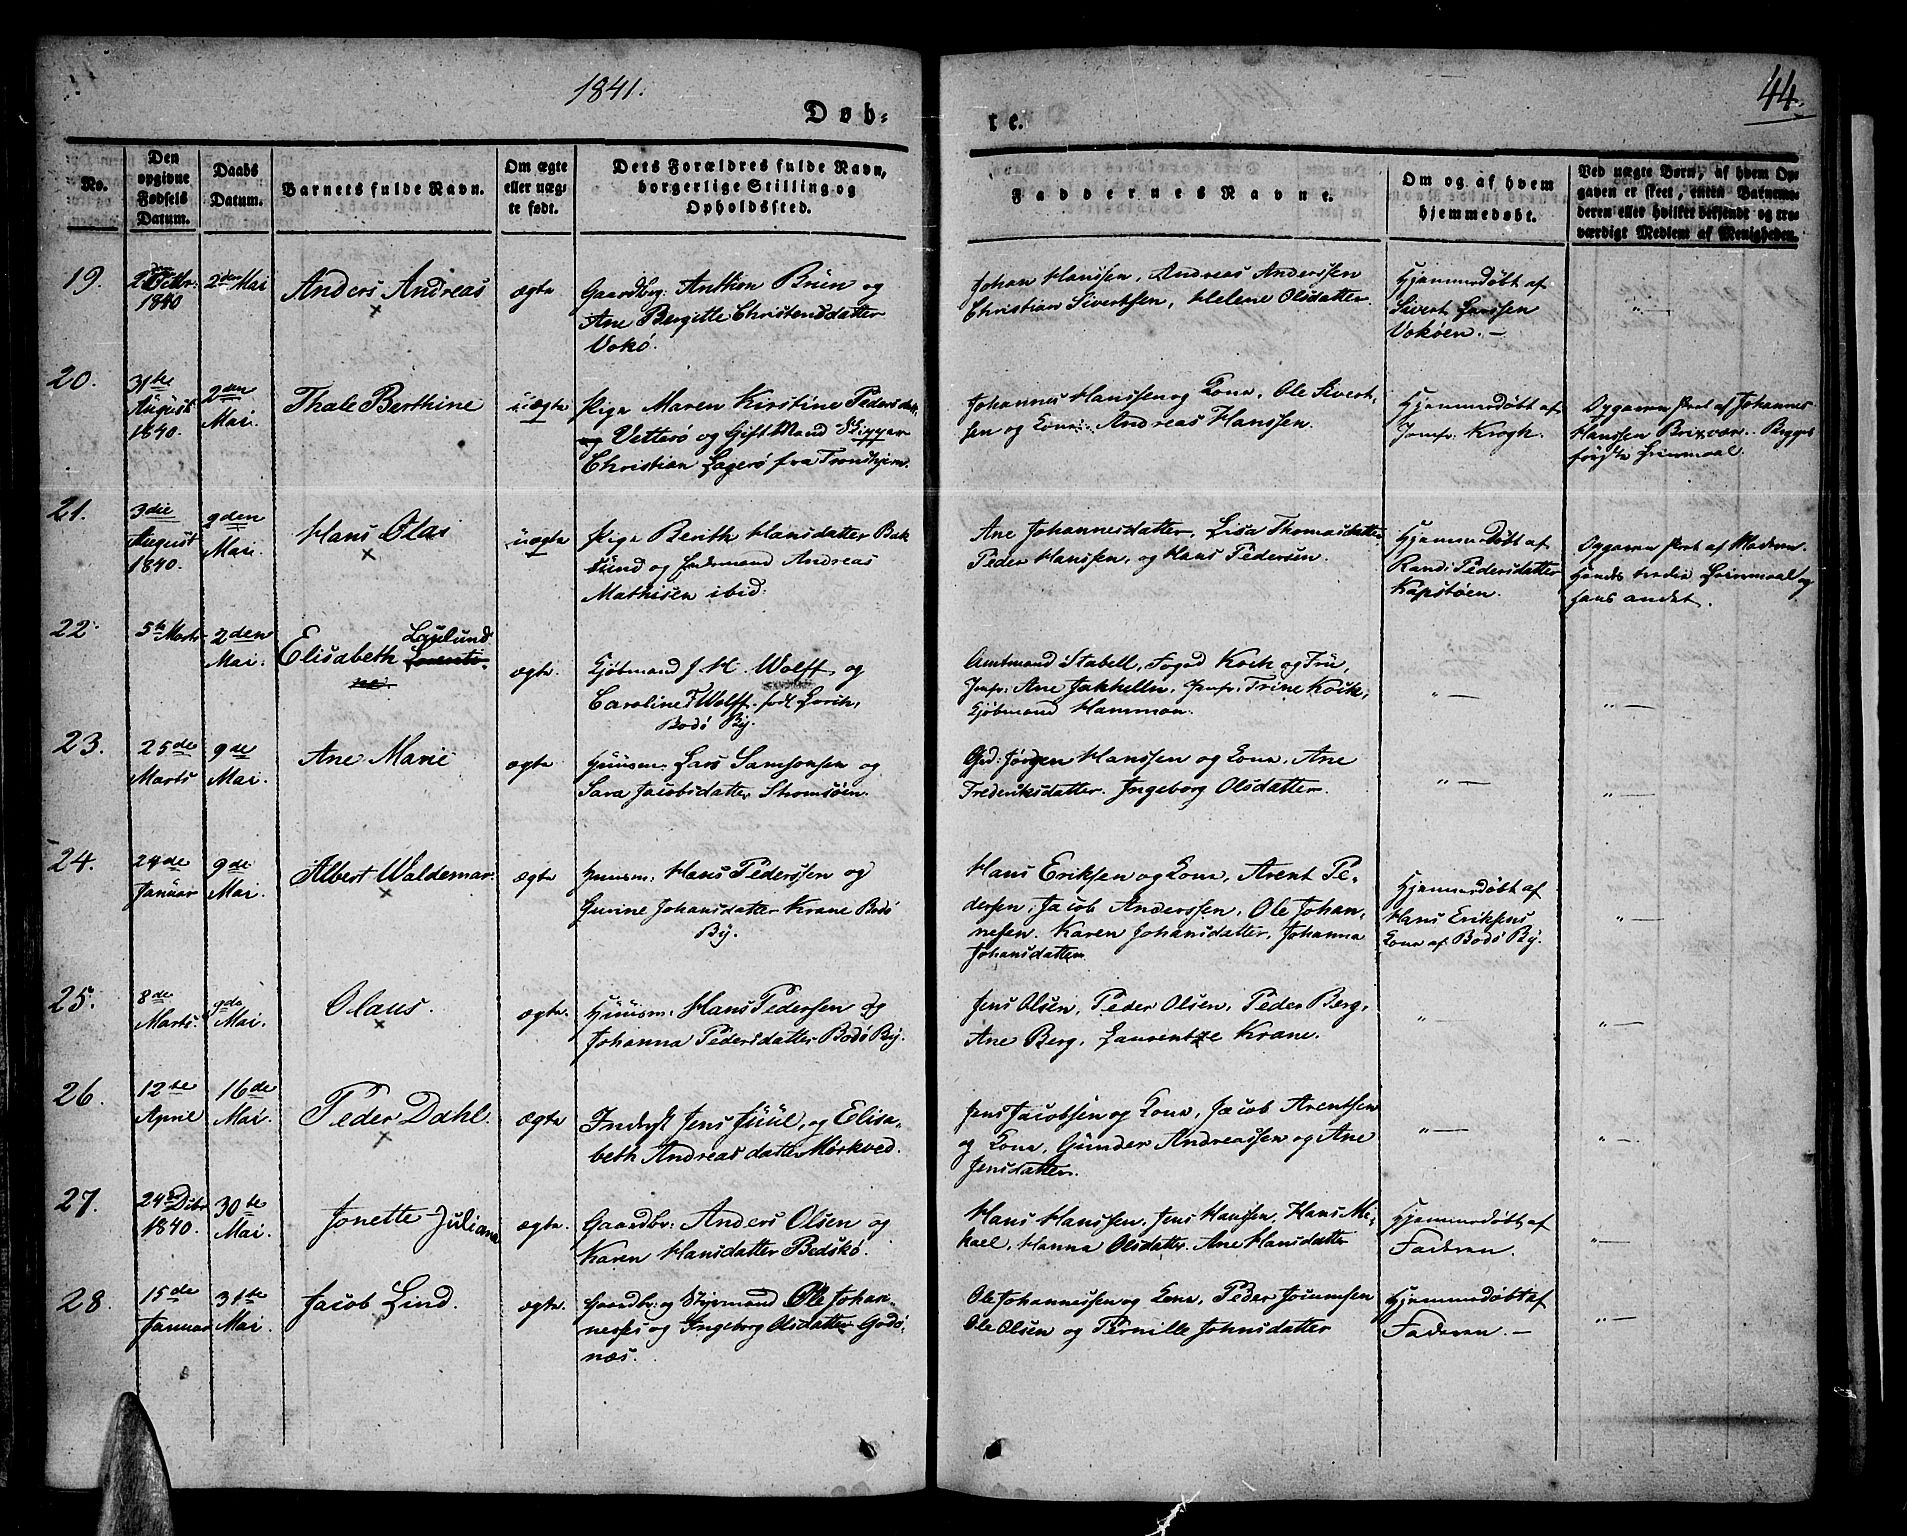 1841.
44.
Døb-
te.
No.
Den opgivne Fødsels Datum.
Daabs Datum.
Barnets fulde Navn.
Om ægte eller uægte født.
Dets Forældres fulde Navn, borgerlige Stilling og Opholdssted.
Faddernes Navne.
Om og af hvem hjemmedøbt.
Ved uægte Børn, af hvem Opgaven er skeet, enten Barnemoderen eller hvilket bekjendt og troværdigt Medlem af Menigheden.
19.
1840
2den Mai
Anders Andreas
ægte
Gaardbr: Anthon Brün og
Ane Bergitte Christensdatter
Vokö.
Johan Hanssen, Andreas Anderssen
Christian Sivertsen, Helene Olsdatter
Hjemmedøbt af
Sivert Larssen
Vokøen. —
" —
20.
31te
August
1840.
2den
Mai.
Thale Berthine
uægte
Pige Maren Kirstine Pedersdatt.
og Vetterö og Gift Mand Skipper
Christian Lagerö fra Tronhjem.
Johannes Hanssen og Kone, Ole Sivert-
sen og Kone. Andreas Hanssen.
Hjemmedøbt af
Jomfr: Krogh.
Opgaven skeet af Johannes
Hanssen Brixvær. Begges
første Leiermaal.
21.
3die
August
1840.
9den
Mai.
Hans Olai
uægte
Pige Berith Hansdatter Bak
sund og Andreas
Mathisen ibid.
Ane Johannesdatter, Lisa Thomasdatter
Peder Hanssen, og Hans Pedersen.
Hjemmedøbt af
Randi Pedersdatter
Kapstøen.
Opgaven skeet af Moderen.
Hendes tredie Leiermaal og
hans andet.
22.
5te Marts
2den
Mai.
Elisabeth Laulund
ægte
Kjöbmand J. H. Wolff og
Caroline F Wolff. født Lorch,
Bodö By.
Amtmand Stabell, Foged Koch og Frü,
Jomfr: Ane Jakhelln. Jomfr: Trine Koch,
Kjöbmand Hammon.
" —
" —
23.
25de
Marts
9de
Mai.
Ane Marie
ægte
Huusm: Lars Samsonsen og
Sara Jacobsdatter Stromsöen.
Grd: Jørgen Hanssen og Kone, Ane
Frederiksdatter. Ingeborg Olsdatter.
" —
" —
24.
24de
Januar
9de
Mai.
Albert Waldemar.
ægte
Huusm: Hans Pederssen og
Gurine Johansdatter Krane Bodö
By.
Hans Eriksen og Kone, Arent Pe-
dersen, Jacob Anderssen, Ole Johan-
nesen. Karen Johansdatter, Johanna
Johansdatter
Hjemmedøbt af
Hans Eriksens
Kone af Bodö By.
" —
25.
8de
Marts.
9de
Mai.
Olaus.
ægte.
Huusm: Hans Pedersen og
Johanna Pedersdatter Bodö By.
Jens Olsen, Peder Olsen, Peder Berg,
Ane Berg, Laurentze Krane.
" —
" —
26.
12te
April
16de
Mai.
Peder Dahl.
ægte
Inderst Jens Juul, og Elisa-
beth Andreasdatter Mørkved.
Jens Jacobsen og Kone, Jacob Arentsen
og Kone, Gunder Andreassen og Ane
Jensdatter.
" —
" —
27.
24de Dcbr
1840.
30te
Mai.
Jonette Juliane
ægte.
Gaardbr: Anders Olsen og
Karen Hansdatter Bedskö.
Hans Hanssen, Jens Hanssen, Hans Mi-
kael, Hanna Olsdatter. Ane Hansdatter
Hjemmedøbt af
Faderen.
" —
28.
15de
Januar
31te
Mai.
Jacob Lind.
ægte.
Gaardbr: og Styrmand Ole Johan-
nesses og Ingeborg Olsdatter Godö-
næs.
Ole Johannessen og Kone, Peder
Ole Olsen og Pernille Johnsdatter
Hjemmedøbt af
Faderen. —
" —